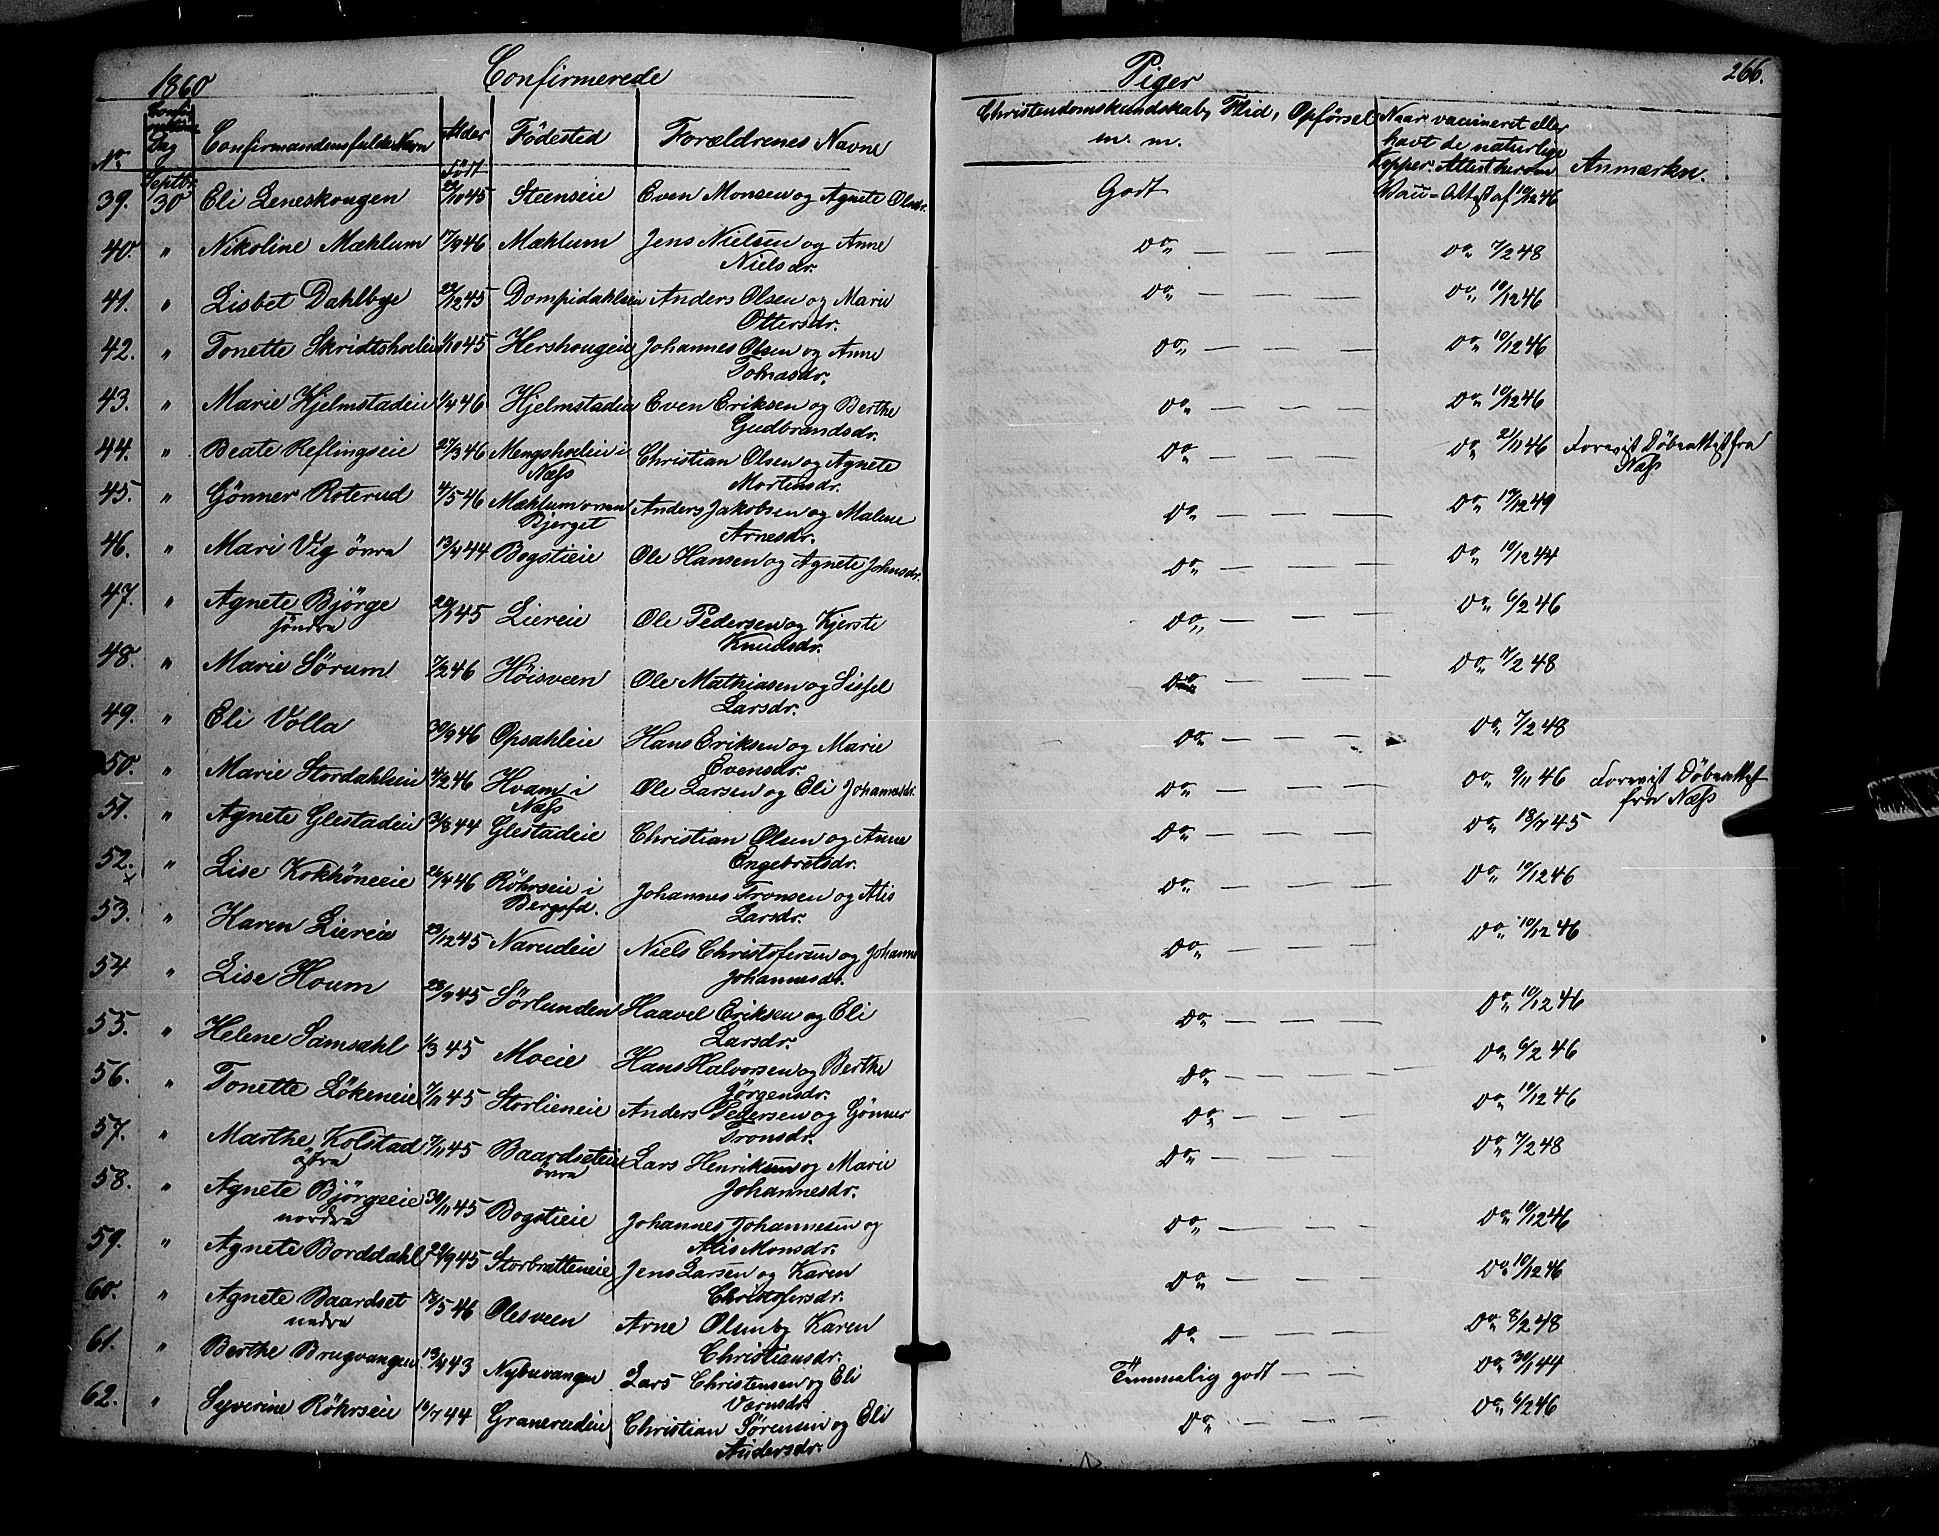 1860 Confirmerede Piger 266.
No. Dag Confirmandens fulde Navn Alder Födested Forældrenes Navne Christendomskundskab, Flid, Opførsel m. m. Naar vaccineret eller havt de naturlige Kopper. Attest herom Anmærkn.
Septbr. født
39. 30 Eli Leneskougen 45 Steenseie Even Monsen og Agnete Olsdr. Godt Vacc=Attest af 19/12 46
40. " Nikoline Mæhlum 17/9 46 Mæhlum Jens Nielsen og Anne Nielsdr. Do — — — Do 7/2 48
41. " Lisbet Dahlbye 45 Dompidahlseie Anders Olsen og Marie Ottersdr. Do — — — Do 19/12 46
42. " Tonette Skridtsholeie 45 Hershougeie Johannes Olsen og Anne Do — — — Do 19/12 46
43. " Marie Hjelmstadeie 46 Hjelmstadeie Even Eriksen og Berthe Gudbrandsdr. Do — — — Do 19/12 46
44. " Beate Reflingseie 27/3 46 Mengsholeie i Næss Christian Olsen og Agnete Mortensdr. Do — — — Do 46 Forevist Döbeattest fra Næss
45. " Gönner Roterud 4/5 46 Mæhlum Bjerget Anders Jakobsen og Malene Arnesdr. Do — — — Do 19/12 49
46. " Mari Vig övra 13/4 44 Bogstieie Ole Hansen og Agnete Johnsdr. Do — — — Do 19/12 44
47. " Agnete Bjørge söndra 45 Liereie Ole Pedersen og Kjersti Knudsdr. Do — — — Do 6/2 46
48. " Marie Sørum 7/2 46 Höisveen Ole Mathiasen og Sissel Larsdr. Do — — — Do 7/2 48
49. " Eli Volla 30/9 46 Opsahleie Hans Eriksen og Marie Evensdr. Do — — — Do 7/2 48
50. " Marie Stordahlseie 4/2 46 Hvam i Næss Ole Larsen og Eli Johannesdr. Do — — — Do 9/11 46 Forevist Döbeattest fra Næss
51. " Agnete Glestadeie 3/8 44 Glestadeie Christian Olsen og Anne Engebretsdr. Do — — — Do 18/7 45
52. " Lise Kokhöneeie 26/4 46 Röhrseie i Johannes Tronsen og Alis Larsdr. Do — — — Do 19/12 46
53. " Karen Liereie 23/12 45 Narudeie Niels Christofersen og Johanne Johannesdr. Do — — — Do 19/12 46
54 " Lise Houm 28/9 45 Sörlunden Haavel Eriksen og Eli Larsdr. Do — — — Do 19/12 46
55. " Helene Samsahl 1/3 45 Moeie Hans Halvorsen og Berthe Jørgensdr. Do — — — Do 6/2 46
56. " Tonette Lökeneie 7/11 45 Storlieneie Anders Pedersen og Gönner Tronsdr. Do — — — Do 19/12 46
57. " Marthe Kolstad östra 7/11 45 Baardseteie övra Lars Henriksen og Marie Johannesdr. Do — — — Do 7/2 48
58. " Agnete Bjørgeeie nordra 30/11 45 Bogstieie Johannes Johannesen og Alis Monsdr. Do — — — Do 19/12 46
59. " Agnete Borddahl 29/9 45 Storbratteneie Jens Larsen og Karen Christofersdr. Do — — — Do 19/12 46
60. " Agnete Baardset nedra 18/5 46 Olesveen Arne Olsen og Karen Christiansdr. Do — — — Do 8/2 48
61. " Berthe Brugvangen 13/4 43 Nybuvangen Lars Christensen og Eli Do Temmelig godt — — Do 30/1 44
62. " Syverine Röhrseie 16/7 44 Granerudeie Christian Sörensen og Eli Andersdr. Do — — — Do 6/2 46